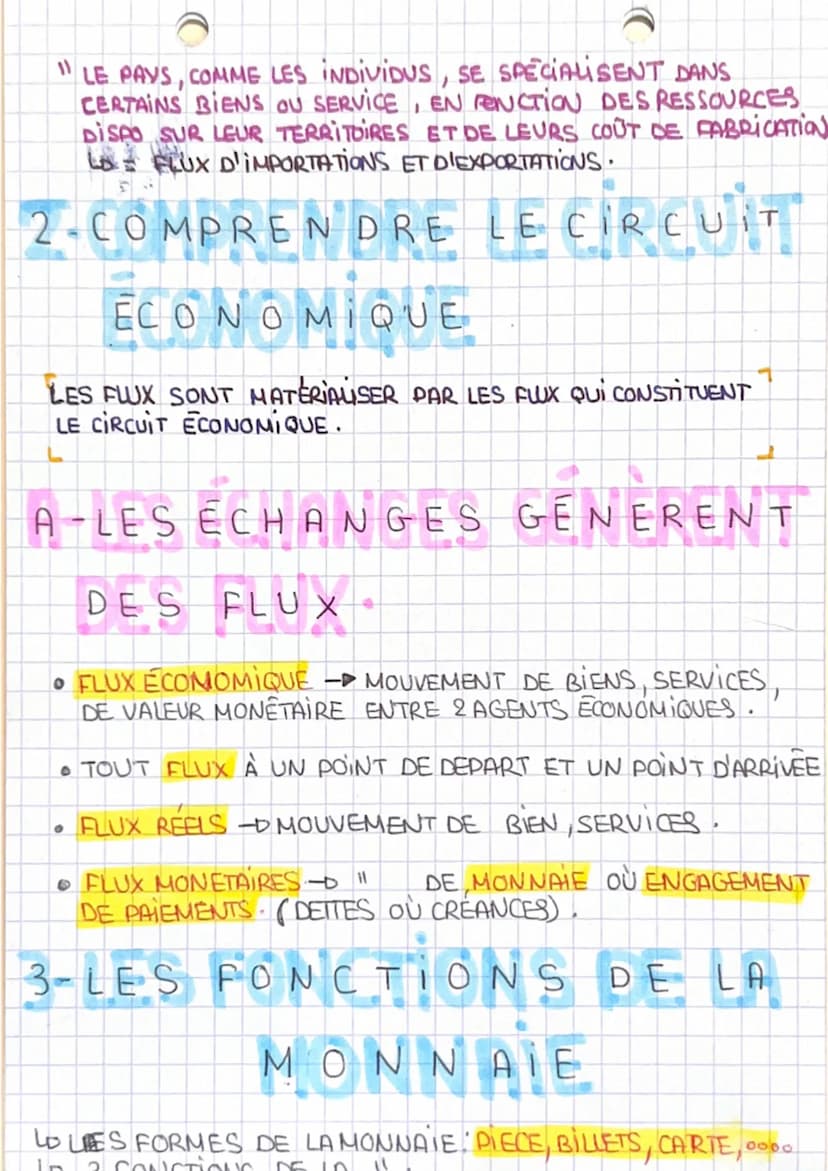 " LE PAYS, COMME LES INDIVIDUS, SE SPÉCIALISENT DANS
CERTAINS BIENS OU SERVICE, EN FONCTION DES RESSOURCES
DISPO SUR LEUR TERRITOIRES ET DE LEURS COÛT DE FABRICATION
↳ = FLUX D'IMPORTATIONS ET D'EXPORTATIONS.
2-COMPRENDRE LE CIRCUIT
ÉCONOMIQUE
LES FLUX SONT MATÉRIALISER PAR LES FLUX QUI CONSTITUENT
LE CIRCUIT ÉCONOMIQUE.
A-LES ÉCHANGES GÉNÈRENT
DES FLUX.
• FLUX ÉCONOMIQUE → MOUVEMENT DE BIENS, SERVICES,
DE VALEUR MONÉTAIRE ENTRE 2 AGENTS ÉCONOMIQUES.
• TOUT FLUX À UN POINT DE DEPART ET UN POINT D'ARRIVÉE
• FLUX RÉELS → MOUVEMENT DE BIEN, SERVICES.
• FLUX MONETAIRES → " DE MONNAIE OÙ ENGAGEMENT
DE PAIEMENTS. (DETTES OÙ CRÉANCES).
3-LES FONCTIONS DE LA
MONNAIE
↳ LES FORMES DE LA MONNAIE: PIECE, BILLETS, CARTE, ....
↳ 3 FONCTIONS DE LA ".